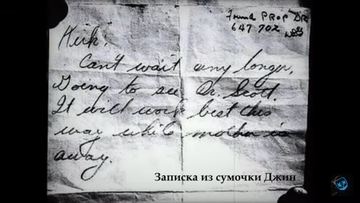 Kirk,
Can't wait any longer,
Going to see Dr. Scott.
It will work best this
way while mother is
away.
Found PROP
647 702
Записка из сумочки Джин